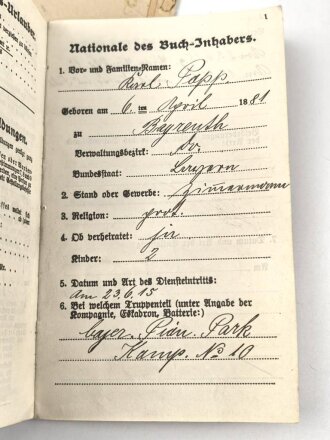 1
Nationale des Buch-Inhabers.
1. Vor- und Familien-Namen:
Karl Popp
Geboren am 6. im April 1881
zu Bayreuth
Verwaltungsbezirk: do.
Bundesstaat: Bayern
2. Stand oder Gewerbe: Zimmermann
3. Religion: prot.
4. Ob verheiratet: ja
Kinder: 2
5. Datum und Art des Diensteintritts:
Am 23.6.15
6. Bei welchem Truppenteil (unter Angabe der
Kompagnie, Eskadron, Batterie:)
bayer. Pion. Park
Komp. No 10